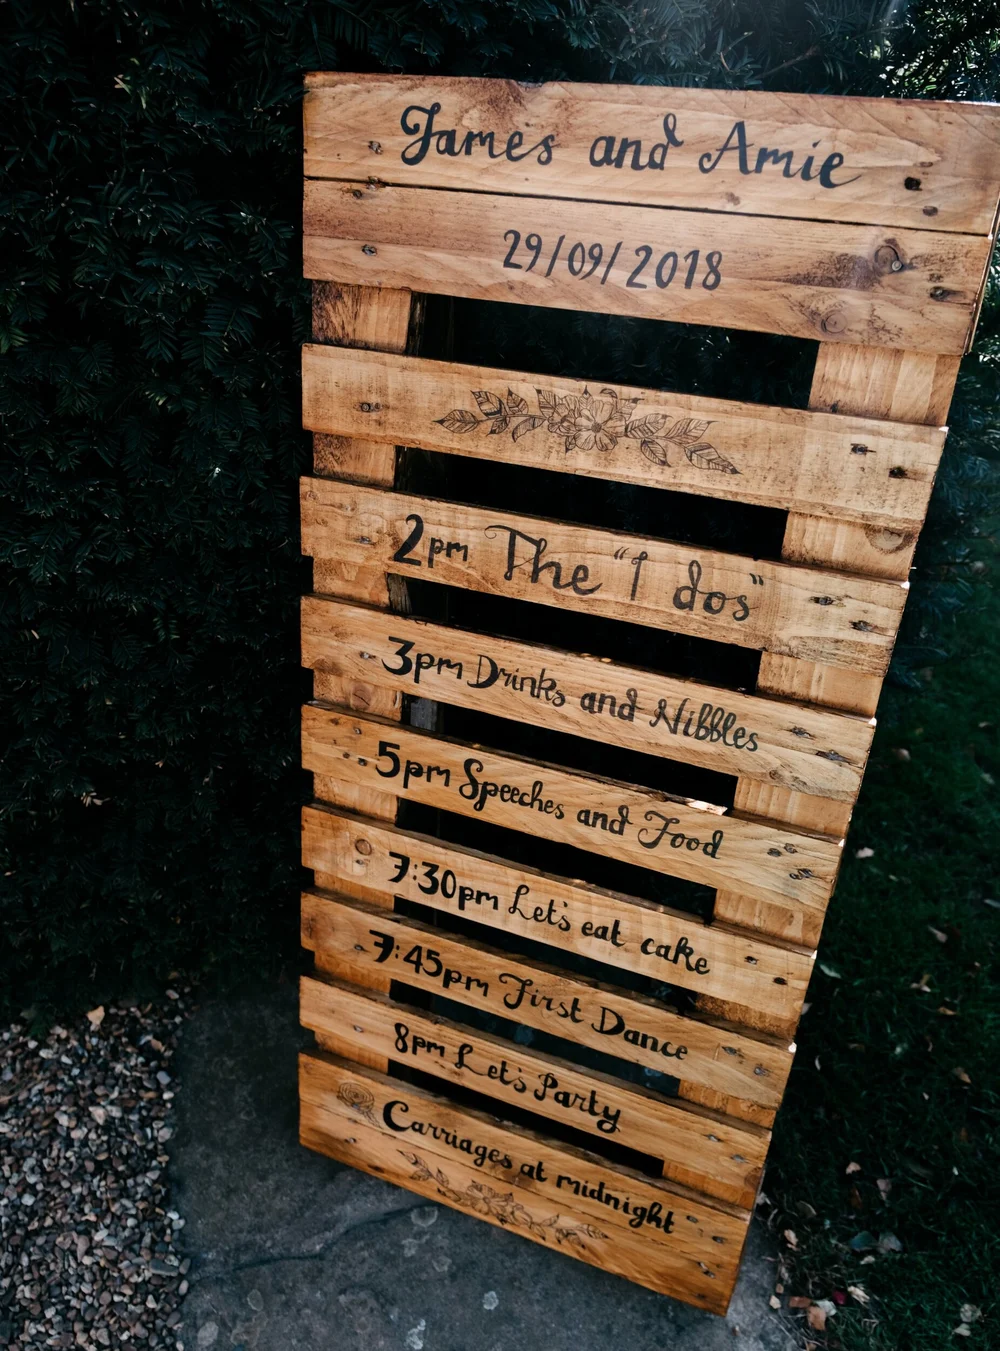 James and Amie
29/09/2018
2pm The "I dos"
3pm Drinks and Nibbles
5pm Speeches and Food
7:30pm Let's eat cake
7:45pm First Dance
8pm Let's Party
Carriages at midnight